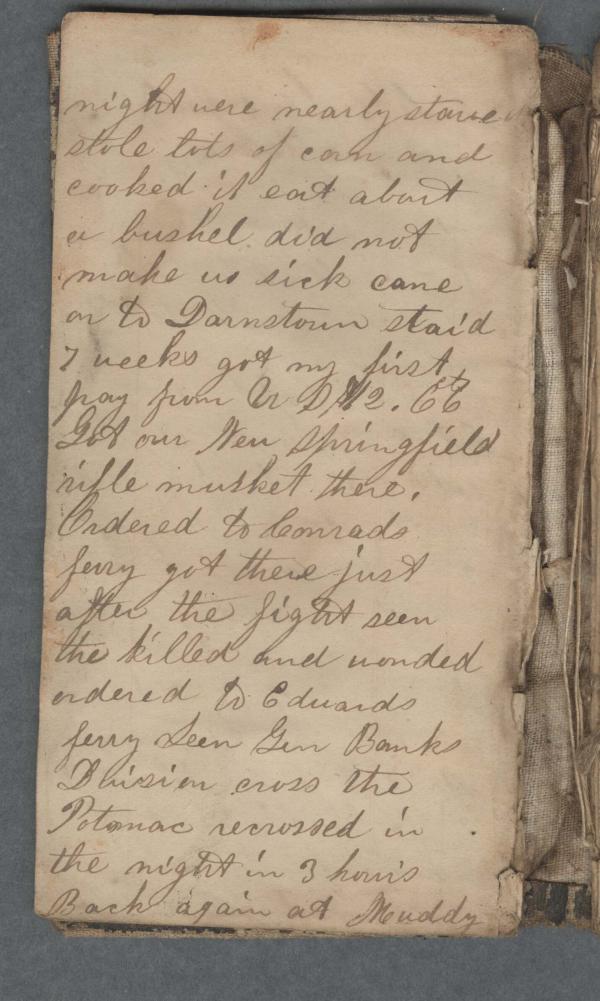 night were nearly starved
stole lots of corn and
cooked it eat about
a bushel did not
make us sick came
on to Darnstown staid
7 weeks got my first
pay from U S $12.66
Got our New Springfield
rifle musket there.
Ordered to Conrads
ferry got there just
after the fight seen
the killed and wonded
ordered to Edwards
ferry Seen Gen Banks
Division cross the
Potomac recrossed in
the night in 3 hours
Back again at Muddy